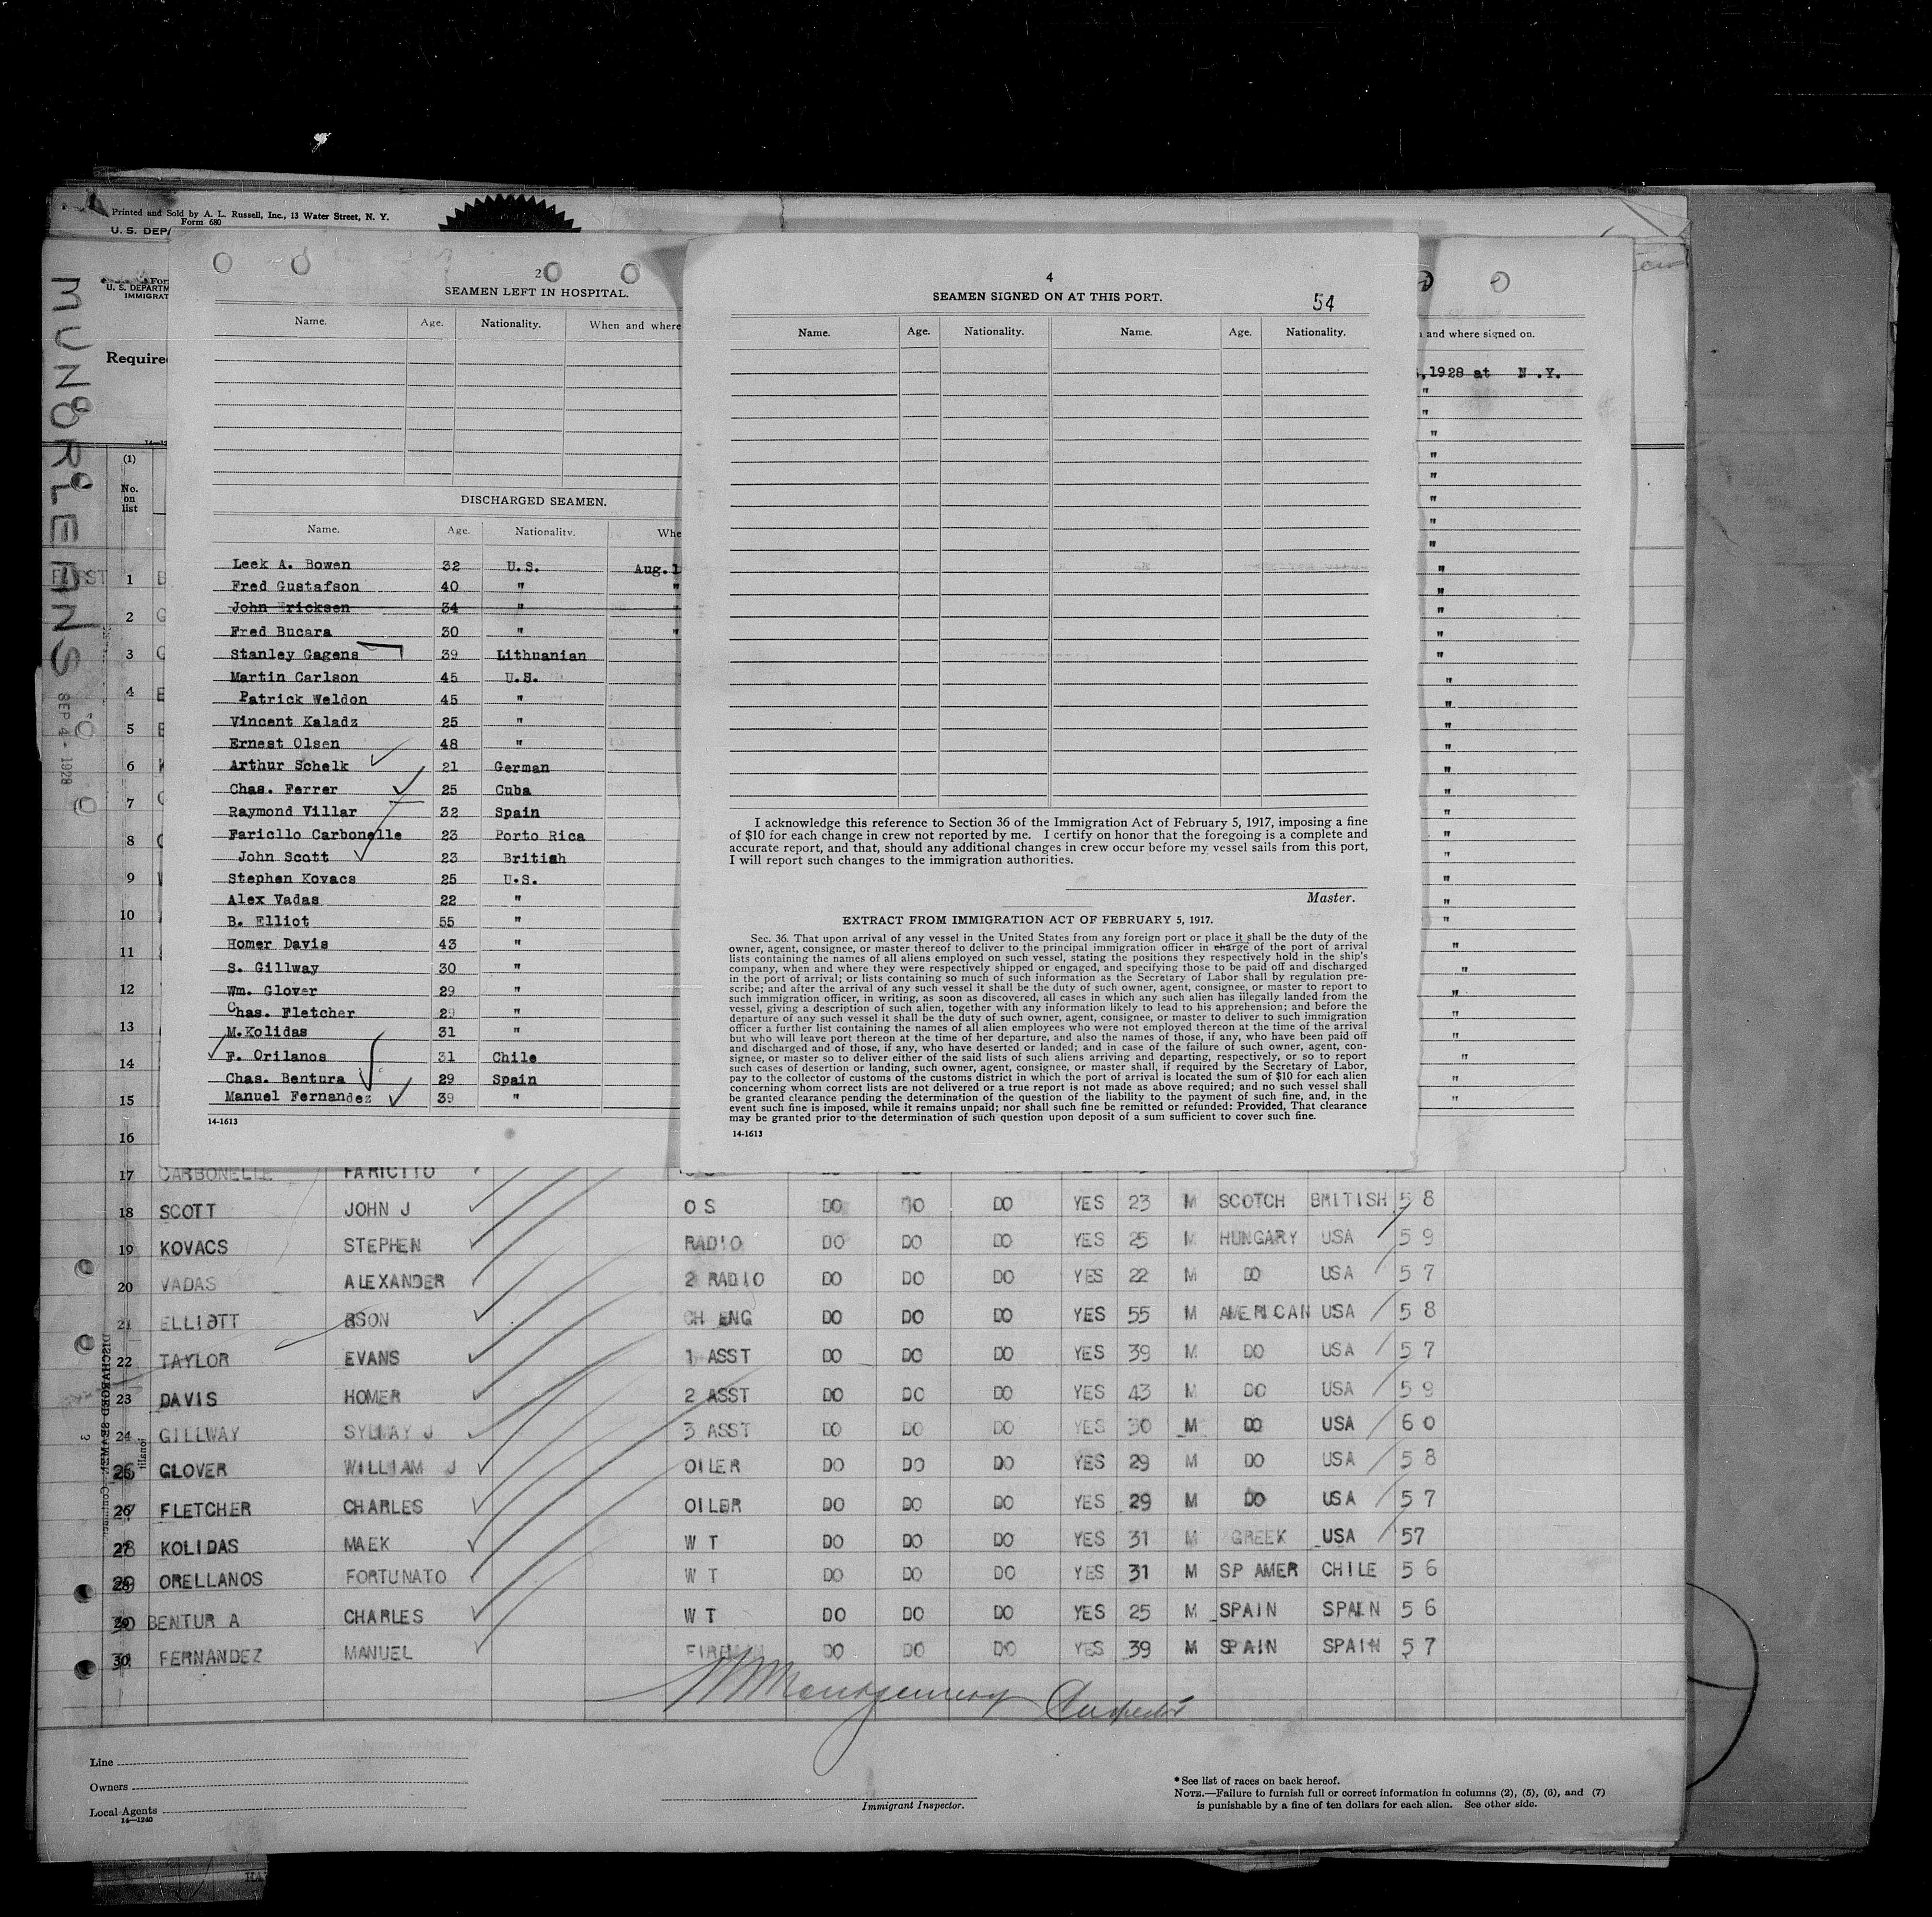 Printed and Sold by A. L. Russell, Inc., 13 Water Street, N. Y.
Form 680
U. S. DEP
For
U. S. DEPARTM
IMMIGRAT
Require
MUNORLEANS
SEP 4 - 1928
(1)
No.
on
list
FIRST
1
2
3
4
5
6
7
8
9
10
11
12
13
14
15
16
2
SEAMEN LEFT IN HOSPITAL.
Name. Age. Nationality. When and where
DISCHARGED SEAMEN.
Name. Age. Nationality. Whe
Leek A. Bowen 32 U.S. Aug.1
Fred Gustafson 40 " "
John Ericksen 34 " "
Fred Bucara 30 " "
Stanley Gagens 39 Lithuanian
Martin Carlson 45 U.S.
Patrick Weldon 45 "
Vincent Kaladz 25 "
Ernest Olsen 48 "
Arthur Schelk 21 German
Chas. Ferrer 25 Cuba
Raymond Villar 32 Spain
Faricllo Carbonelle 23 Porto Rica
John Scott 23 British
Stephen Kovacs 25 U.S.
Alex Vadas 22 "
B. Elliot 55 "
Homer Davis 43 "
S. Gillway 30 "
Wm. Glover 29 "
Chas. Fletcher 29 "
M.Kolidas 31 "
F. Orilanos 31 Chile
Chas. Bentura 29 Spain
Manuel Fernandez 39 "
14-1613
4
SEAMEN SIGNED ON AT THIS PORT.
54
Name. Age. Nationality. Name. Age. Nationality.
I acknowledge this reference to Section 36 of the Immigration Act of February 5, 1917, imposing a fine
of $10 for each change in crew not reported by me. I certify on honor that the foregoing is a complete and
accurate report, and that, should any additional changes in crew occur before my vessel sails from this port,
I will report such changes to the immigration authorities.
Master.
EXTRACT FROM IMMIGRATION ACT OF FEBRUARY 5, 1917.
Sec. 36. That upon arrival of any vessel in the United States from any foreign port or place it shall be the duty of the
owner, agent, consignee, or master thereof to deliver to the principal immigration officer in charge of the port of arrival
lists containing the names of all aliens employed on such vessel, stating the positions they respectively hold in the ship's
company, when and where they were respectively shipped or engaged, and specifying those to be paid off and discharged
in the port of arrival; or lists containing so much of such information as the Secretary of Labor shall by regulation pre-
scribe; and after the arrival of any such vessel it shall be the duty of such owner, agent, consignee, or master to report to
such immigration officer, in writing, as soon as discovered, all cases in which any such alien has illegally landed from the
vessel, giving a description of such alien, together with any information likely to lead to his apprehension; and before the
departure of any such vessel it shall be the duty of such owner, agent, consignee, or master to deliver to such immigration
officer a further list containing the names of all alien employees who were not employed thereon at the time of the arrival
but who will leave port thereon at the time of her departure, and also the names of those, if any, who have been paid off
and discharged and of those, if any, who have deserted or landed; and in case of the failure of such owner, agent, con-
signee, or master so to deliver either of the said lists of such aliens arriving and departing, respectively, or so to report
such cases of desertion or landing, such owner, agent, consignee, or master shall, if required by the Secretary of Labor,
pay to the collector of customs of the customs district in which the port of arrival is located the sum of $10 for each alien
concerning whom correct lists are not delivered or a true report is not made as above required; and no such vessel shall
be granted clearance pending the determination of the question of the liability to the payment of such fine, and, in the
event such fine is imposed, while it remains unpaid; nor shall such fine be remitted or refunded: Provided, That clearance
may be granted prior to the determination of such question upon deposit of a sum sufficient to cover such fine.
14-1613
and where signed on.
,1928 at N.Y.
17 CARBONELLE FARICITO
18 SCOTT JOHN J O S DO DO DO YES 23 M SCOTCH BRITISH 58
19 KOVACS STEPHEN RADIO DO DO DO YES 25 M HUNGARY USA 59
20 VADAS ALEXANDER 2 RADIO DO DO DO YES 22 M DO USA 57
21 ELLIOTT BSON CH ENG DO DO DO YES 55 M AMERICAN USA 58
22 TAYLOR EVANS 1 ASST DO DO DO YES 39 M DO USA 57
23 DAVIS HOMER 2 ASST DO DO DO YES 43 M DO USA 59
24 GILLWAY SYLWAY J 3 ASST DO DO DO YES 30 M DO USA 60
25 GLOVER WILLIAM J OILER DO DO DO YES 29 M DO USA 58
26 FLETCHER CHARLES OILER DO DO DO YES 29 M DO USA 57
27 KOLIDAS MAEK W T DO DO DO YES 31 M GREEK USA 57
28 ORELLANOS FORTUNATO W T DO DO DO YES 31 M SP AMER CHILE 56
29 BENTUR A CHARLES W T DO DO DO YES 25 M SPAIN SPAIN 56
30 FERNANDEZ MANUEL FIREMAN DO DO DO YES 39 M SPAIN SPAIN 57
DISCHARGED SEAMEN—Continued.
3
Montgomery
Line
Owners
Local Agents
14—1240
Immigrant Inspector.
* See list of races on back hereof.
NOTE.—Failure to furnish full or correct information in columns (2), (5), (6), and (7)
is punishable by a fine of ten dollars for each alien. See other side.